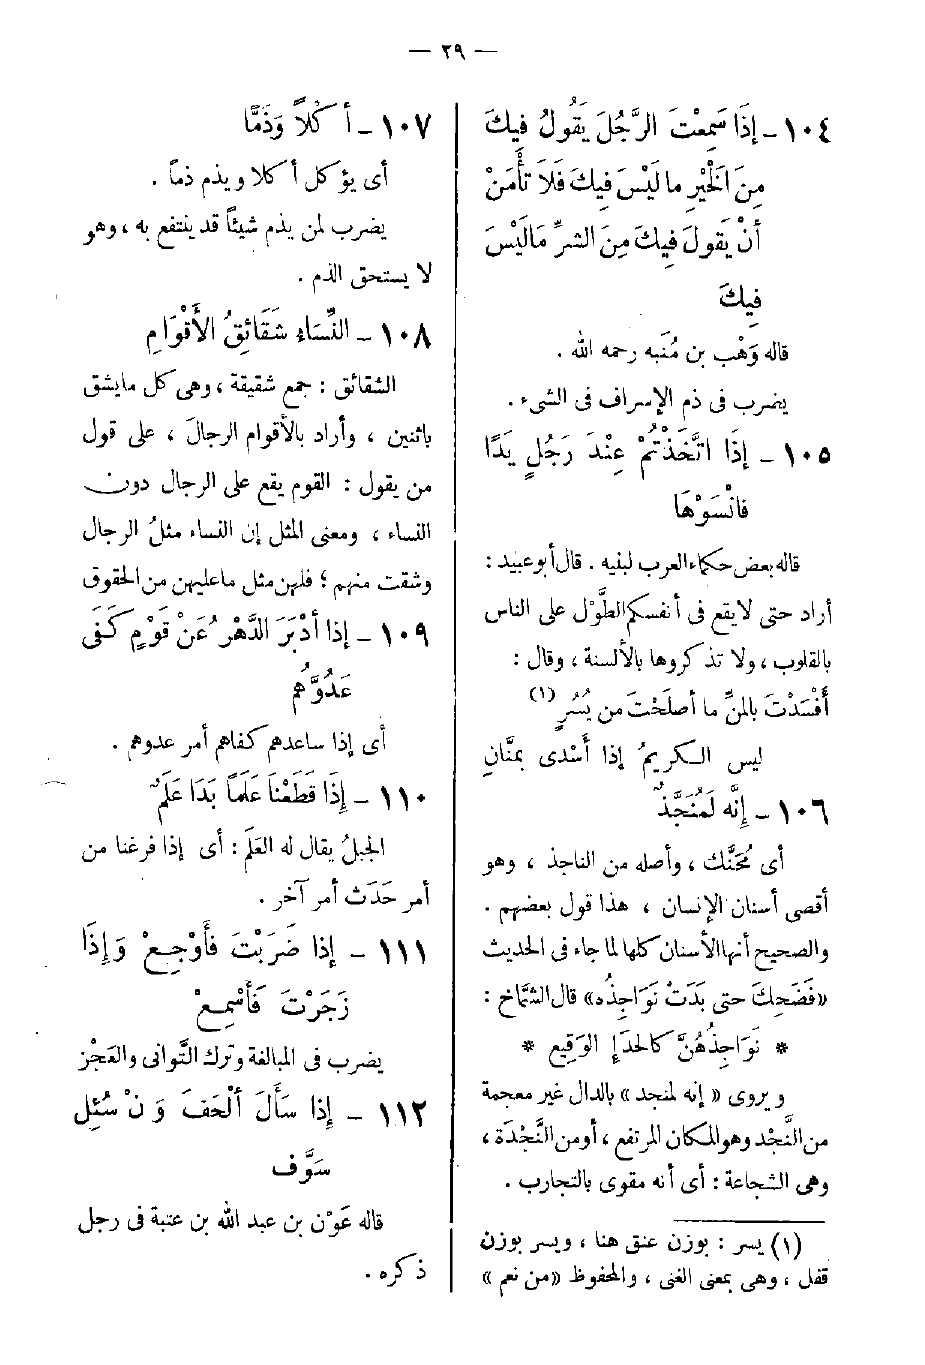 — ٢٩ —
١٠٤ – إِذَا سَمِعْتَ الرَّجُلَ يَقُولُ فِيكَ
مِنَ الْخَيْرِ مالَيْسَ فِيكَ فَلاَ تَأْمَنْ
أَنْ يَقُولَ فِيكَ مِنَ الشرِّ مَالَيْسَ
فِيكَ
قاله وَهْب بن مُنَبه رحمه الله .
يضرب فى ذم الإسراف فى الشىء .
١٠٥ – إِذَا اتَّخَذْتُمْ عِنْدَ رَجُلٍ يَدًا
فانْسَوْهَا
قاله بعض حكماء العرب لبنيه . قال أبو عبيد :
أراد حتى لا يقع فى أنفسكم الطَّوْل على الناس
بالقلوب ، ولا تذكروها بالألسنة ، وقال :
أَفْسَدْتَ بالمنِّ ما أصلَحْتَ من يُسُرٍ (١)
ليس الكريمُ إذا أَسْدى بمنَّانِ
١٠٦ – إِنَّه لَمُنَجَّذٌ
أى مُحَنَّك ، وأصله من الناجذ ، وهو
أقصى أسنان الإنسان ، هذا قول بعضهم .
والصحيح أنها الأسنان كلها لما جاء فى الحديث
«فَضَحِكَ حتى بَدَتْ نَوَاجِذُه» قال الشَّمَّاخ :
* نَوَاجِذُهُنَّ كالحدَإِ الوَقِيع *
ويروى « إنه لمنجد » بالدال غير معجمة
من النَّجْد وهو المكان المرتفع ، أو من النَّجْدَة ،
وهى الشجاعة : أى أنه مقوى بالتجارب .
(١) يسر : بوزن عنق هنا ، ويسر بوزن
قفل ، وهى بمعنى الغنى ، والمحفوظ «من نعم »
١٠٧ – أَ كْلاً وَذَمًّا
أى يؤكل أكلا ويذم ذماً .
يضرب لمن يذم شيئاً قد ينتفع به ، وهو
لا يستحق الذم .
١٠٨ – النِّسَاء شَقَائِقُ الأَقْوَامِ
الشقائق : جمع شقيقة ، وهى كل مايشق
باثنين ، وأراد بالأقوام الرجالَ ، على قول
من يقول : القوم يقع على الرجال دون
النساء ، ومعنى المثل إن النساء مثلُ الرجال
وشقت منهم ؛ فلهن مثل ماعليهن من الحقوق
١٠٩ – إذا أَدْبَرَ الدَّهْرُ عَنْ قَوْمٍ كَفَى
عَدُوَّهُم
أى إذا ساعدهم كفاهم أمر عدوهم .
١١٠ – إِذَا قَطَعْنَا عَلَمًا بَدَا عَلَمٌ
الجبلُ يقال له العَلَم : أى إذا فرغنا من
أمر حَدَث أمر آخر .
١١١ – إذا ضَرَبْتَ فَأَوْجِعْ وَإِذَا
زَجَرْتَ فَأَسْمِعْ
يضرب فى المبالغة وترك التَّوانى والعَجْز
١١٢ – إِذا سَأَلَ أَلْحَفَ وَ نْ سُئِل
سَوَّف
قاله عَوْن بن عبد الله بن عتبة فى رجل
ذكره .